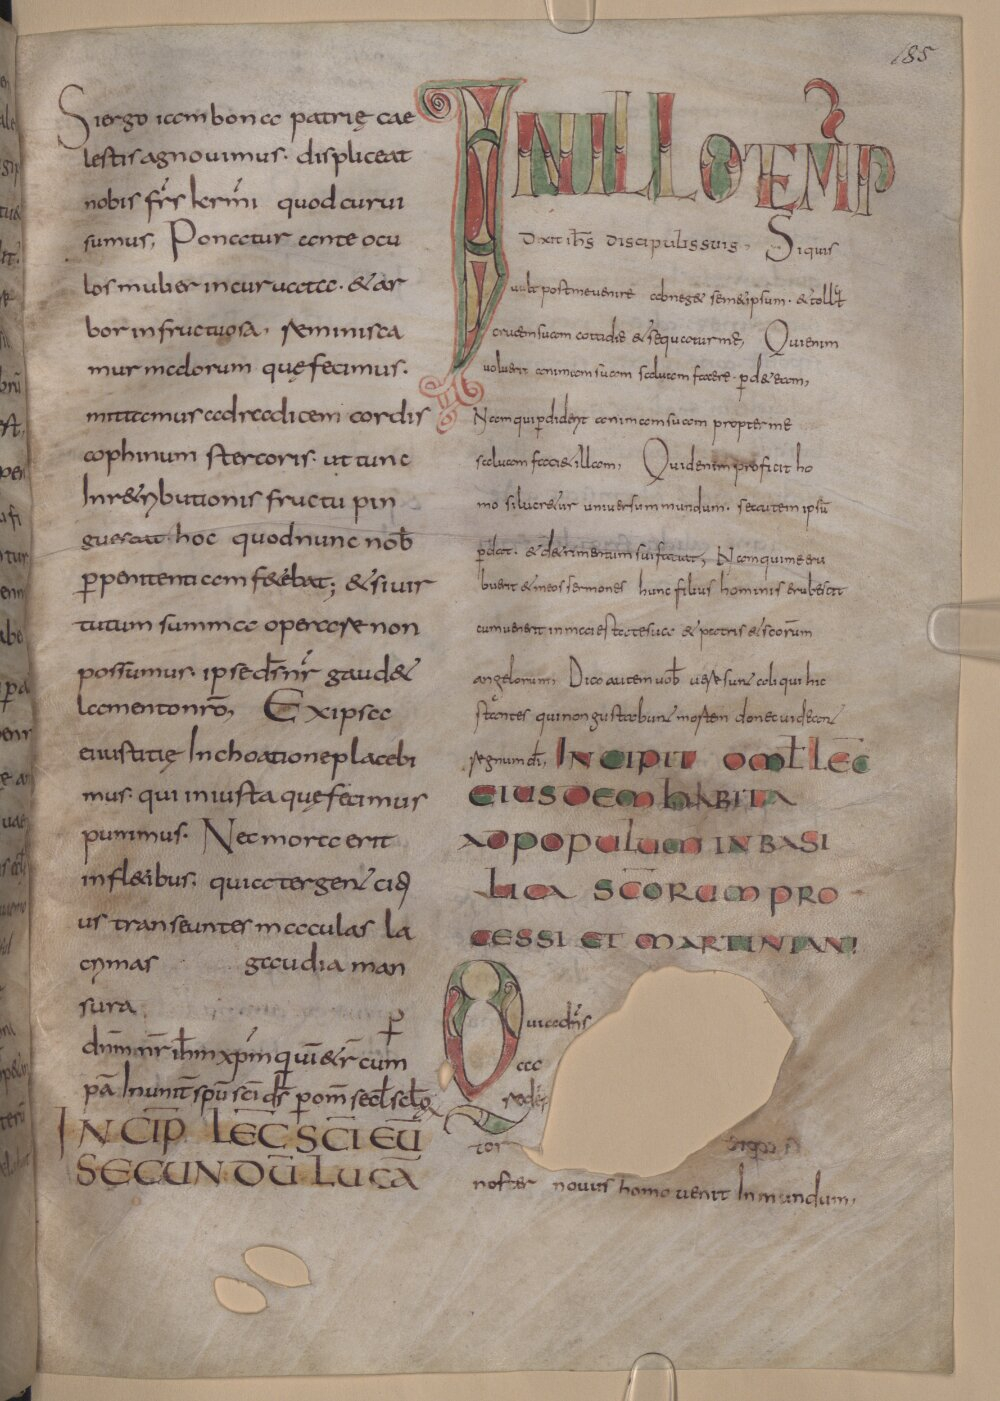 185
Siergo iam bona patrię cae
lestis agnovimus· displiceat
nobis frs̄ kermī quod curvi
sumus, Ponatur ante ocu
los mulier incurvata· & ar
bor infructuosa, reminisca
mur malorum quę fecimus·
mittamus ad radicem cordis
cophinum stercoris· ut tunc
In r&ributionis fructu pin
guescat hoc quod nunc nob̄
p̱ penitentiam f&ebat; & si vir
tutum summa operare non
possumus· ipse ds̄ nr̄ gaud&
lamento nr̄o, Ex ipsa
eni iustitię Inchoatione placebi
mus· qui iniusta quę fecimus
punimus· Nec mora erit
in fl&ibus· quia tergen& citi
us transeuntes maculas la
crimas gaudia man
sura p̱
dn̄m nr̄ ihm̄ xpm̄ qui vi & r̄ cum
pā In unit̄ spū sc̄i ds̄ p̱ om̄ secl̄ scl̄oꝝ
INCIP̄ LEC̄ SC̄I EŪ
SECUNDŪ LUCĀ
IN ILLO TEMP̄
Dixit ihs̄ discipulis suis, Siquis
vult post me venire abneg& sem&ipsum· & toll&
crucem suam cottidie & sequatur me, Qui enim
voluerit animam suam salvam facere· p̱d& eam,
Nam qui p̱diderit animam suam propter me
salvam faci& illam, Quid enim proficit ho
mo si lucr&ur universum mundum· se autem ipsū
p̱dat· & d&rimentum sui faciat, Nam qui me eru
buerit & meos sermones hunc filius hominis erubescit
cum venerit in maiestate sua & patris & sc̄orum
angelorum, Dico autem vob̄ vere sunt aliqui hic
stantes qui non gustabunt mortem donec videant
regnum dī, INCIPIT OML̄ LEC̄
EIUSDEM HABITA
AD POPULUM IN BASI
LICA SC̄ORUM PRO
CESSI ET MARTINIANI
Quia dn̄s
ac
redēp
tor
noster novus homo venit In mundum,